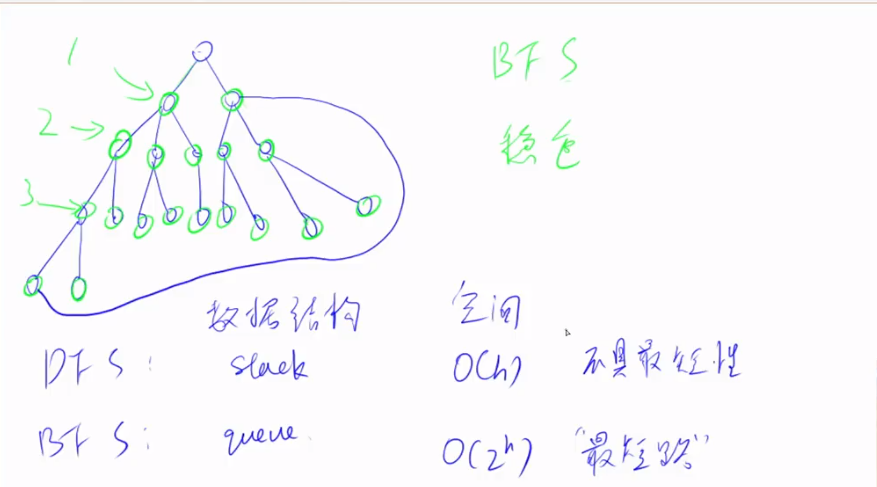 1
BFS
2
稳重
3
数据结构 空间
DFS: stack O(h) 不具最短性
BFS: queue O(2^h) "最短路"